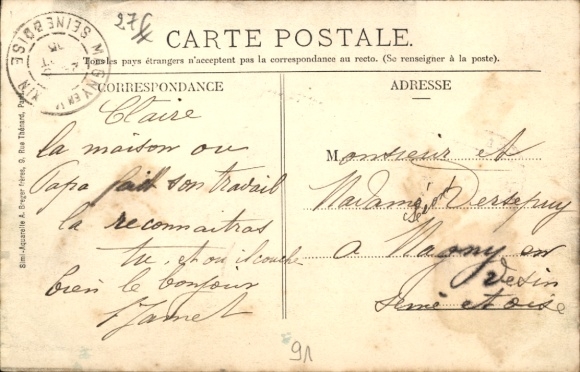 27
CARTE POSTALE.
Tous les pays étrangers n'acceptent pas la correspondance au recto. (Se renseigner à la poste).
CORRESPONDANCE
ADRESSE
MAGNY EN VEXIN
SEINE & OISE
Simi-Aquarelle A. Breger frères, 9, Rue Thénard, Paris
Claire
la maison ou
Papa fait son travail
la reconnaitras
tu, et ou il couche
bien le bonjour
Jamet
Monsieur et
Madame Dersepuy
a Magny en
Vexin
Seine et oise
91